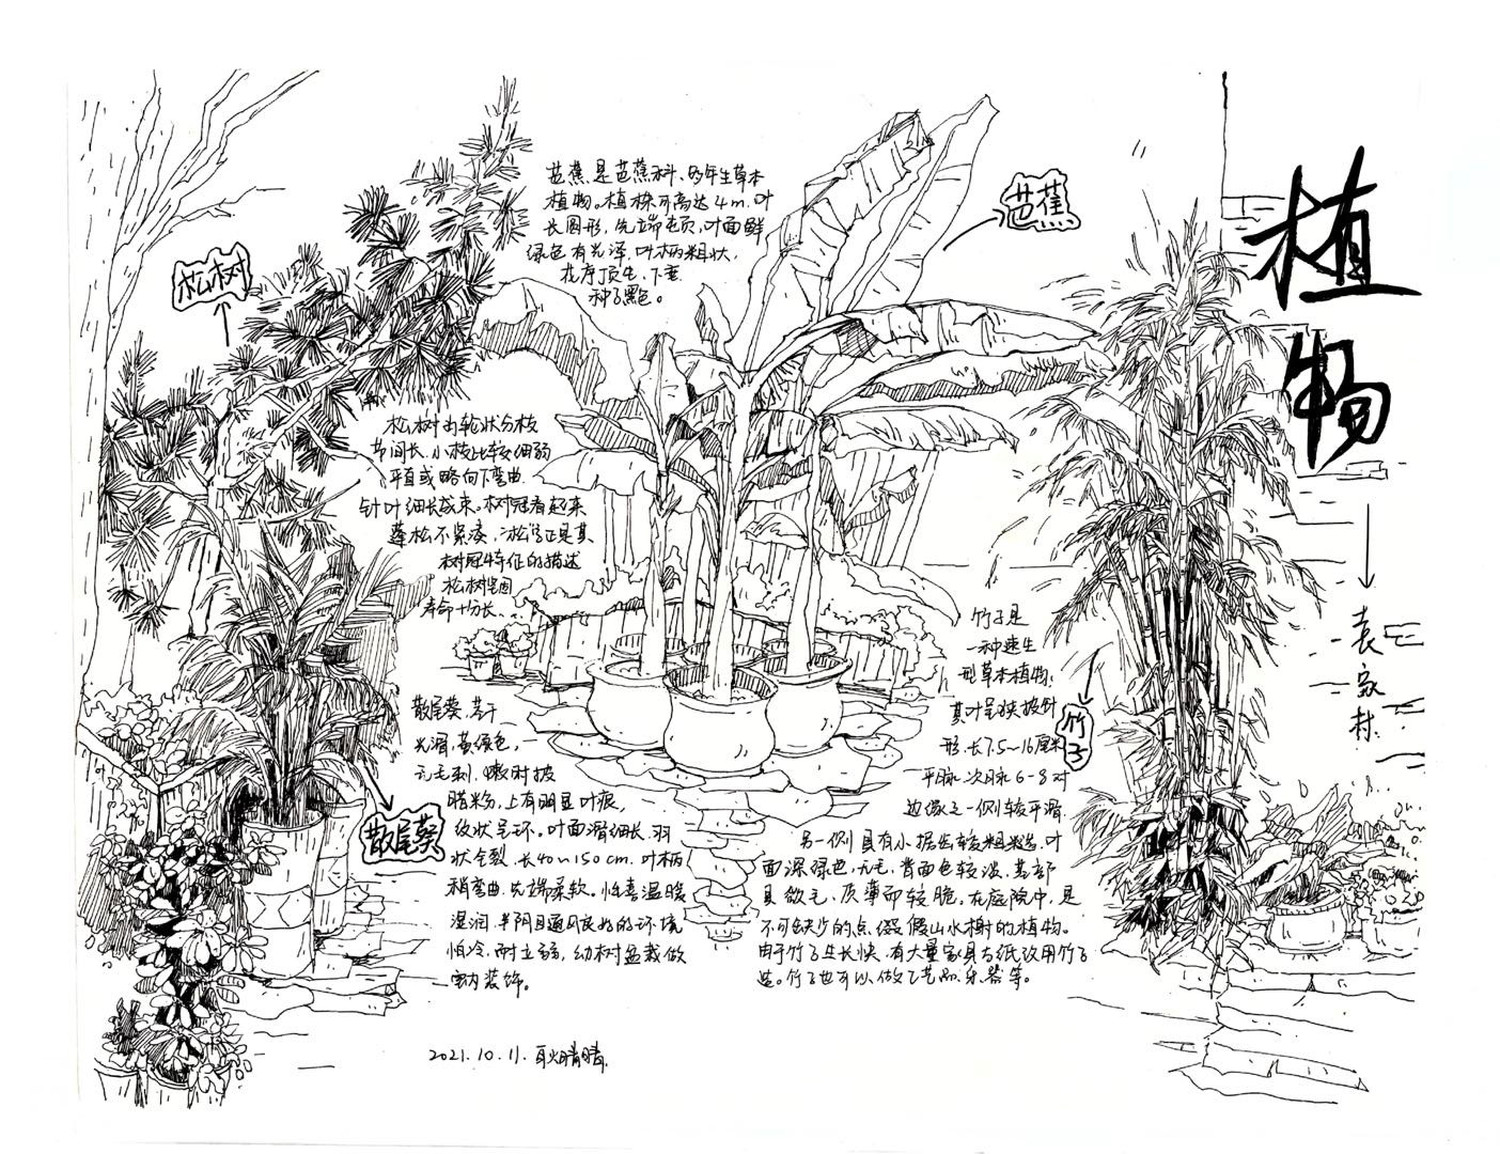 植物
袁家村
芭蕉
芭蕉是芭蕉科、多年生草本
植物。植株可高达4m.叶
长圆形,先端钝,叶面鲜
绿色有光泽,叶柄粗壮,
花序顶生,下垂.
种子黑色。
松树
松树为轮状分枝
节间长,小枝比较细弱
平直或略向下弯曲.
针叶细长成束。树冠看起来
蓬松不紧凑,“松”字正是其
树冠特征的描述
松树坚固
寿命十分长、
散尾葵
散尾葵,茎干
光滑,黄绿色,
无毛刺,嫩时披
腊粉,上有明显叶痕,
纹状呈环。叶面滑细长,羽
状全裂,长40~150cm.叶柄
稍弯曲,先端柔软。性喜温暖
湿润、半阴且通风良好的环境
怕冷,耐
幼树盆栽做
室内装饰。
竹子
竹子是
一种速生
形草本植物,
其叶呈狭披针
形.长7.5~16厘米
平脉 次脉6-8对
边缘之一侧较平滑.
另一侧具有小据齿较粗糙,叶
面深绿色,无毛,背面色较淡、基部
具微毛、质薄而较脆。在庭院中,是
不可缺少的点缀假山水榭的植物。
由于竹子生长快,有大量家具与纸改用竹子
造。竹子也可以做工艺品,乐器等。
2021.10.11.耿晴晴